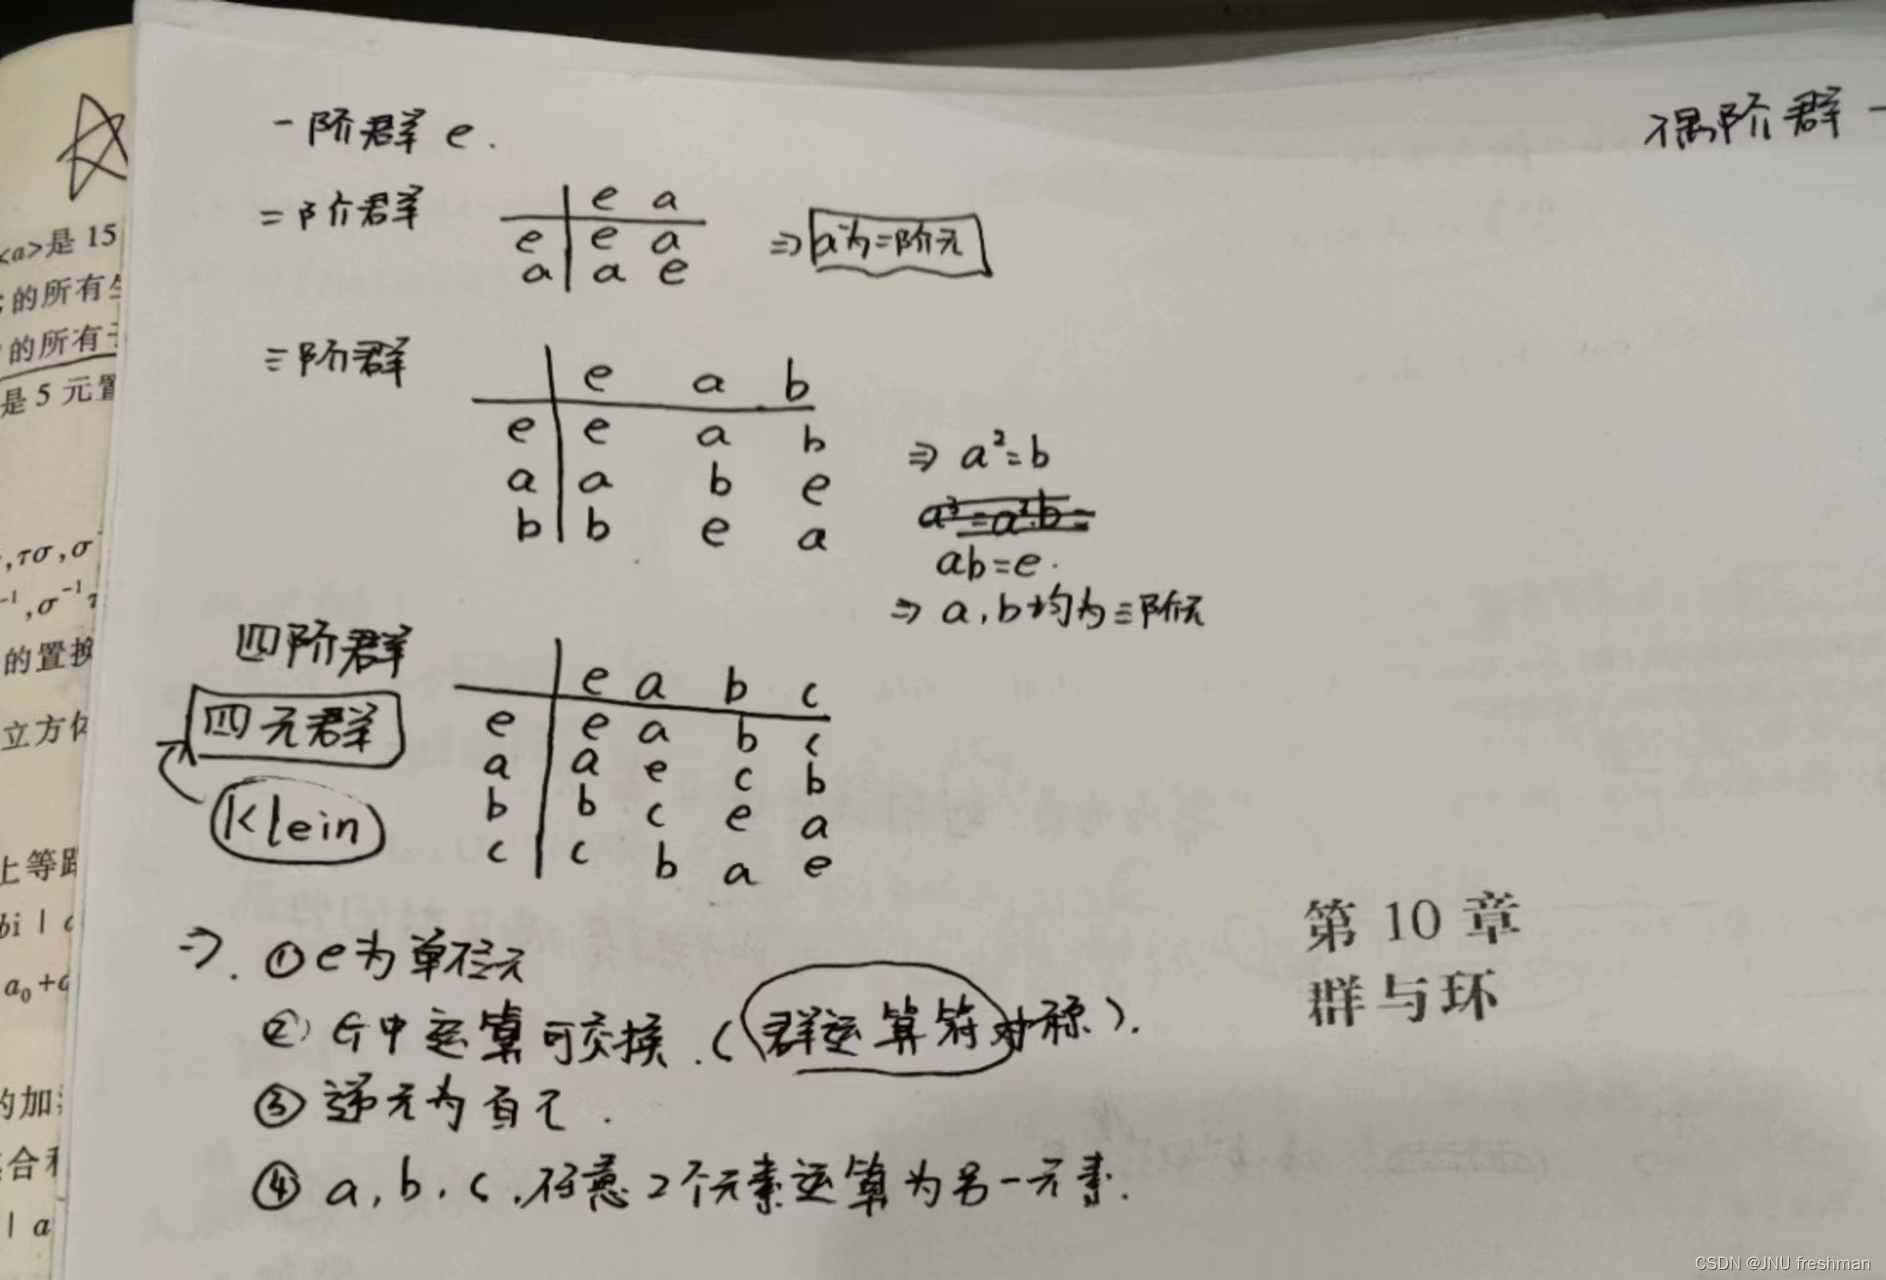 一阶群 e.
偶阶群 一
二阶群
e a
e e a
a a e
⇒ a为二阶元
三阶群
e a b
e e a b
a a b e
b b e a
⇒ a²=b
ab=e.
⇒ a,b均为三阶元
四阶群
四元群
Klein
e a b c
e e a b c
a a e c b
b b c e a
c c b a e
⇒. ① e为单位元
② G中运算可交换.(群运算符对称).
③ 逆元为自己.
④ a,b,c,任意2个元素运算为另一元素.
第 10 章
群与环
<a>是 15
的所有
的所有子
是 5 元置
,τσ,σ
的置换
立方体
上等距
bi | a
a₀+a
的加
合和
| a
CSDN @JNU freshman